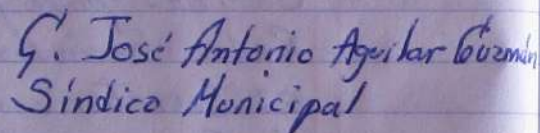 C. José Antonio Aguilar Guzmán
Síndico Municipal